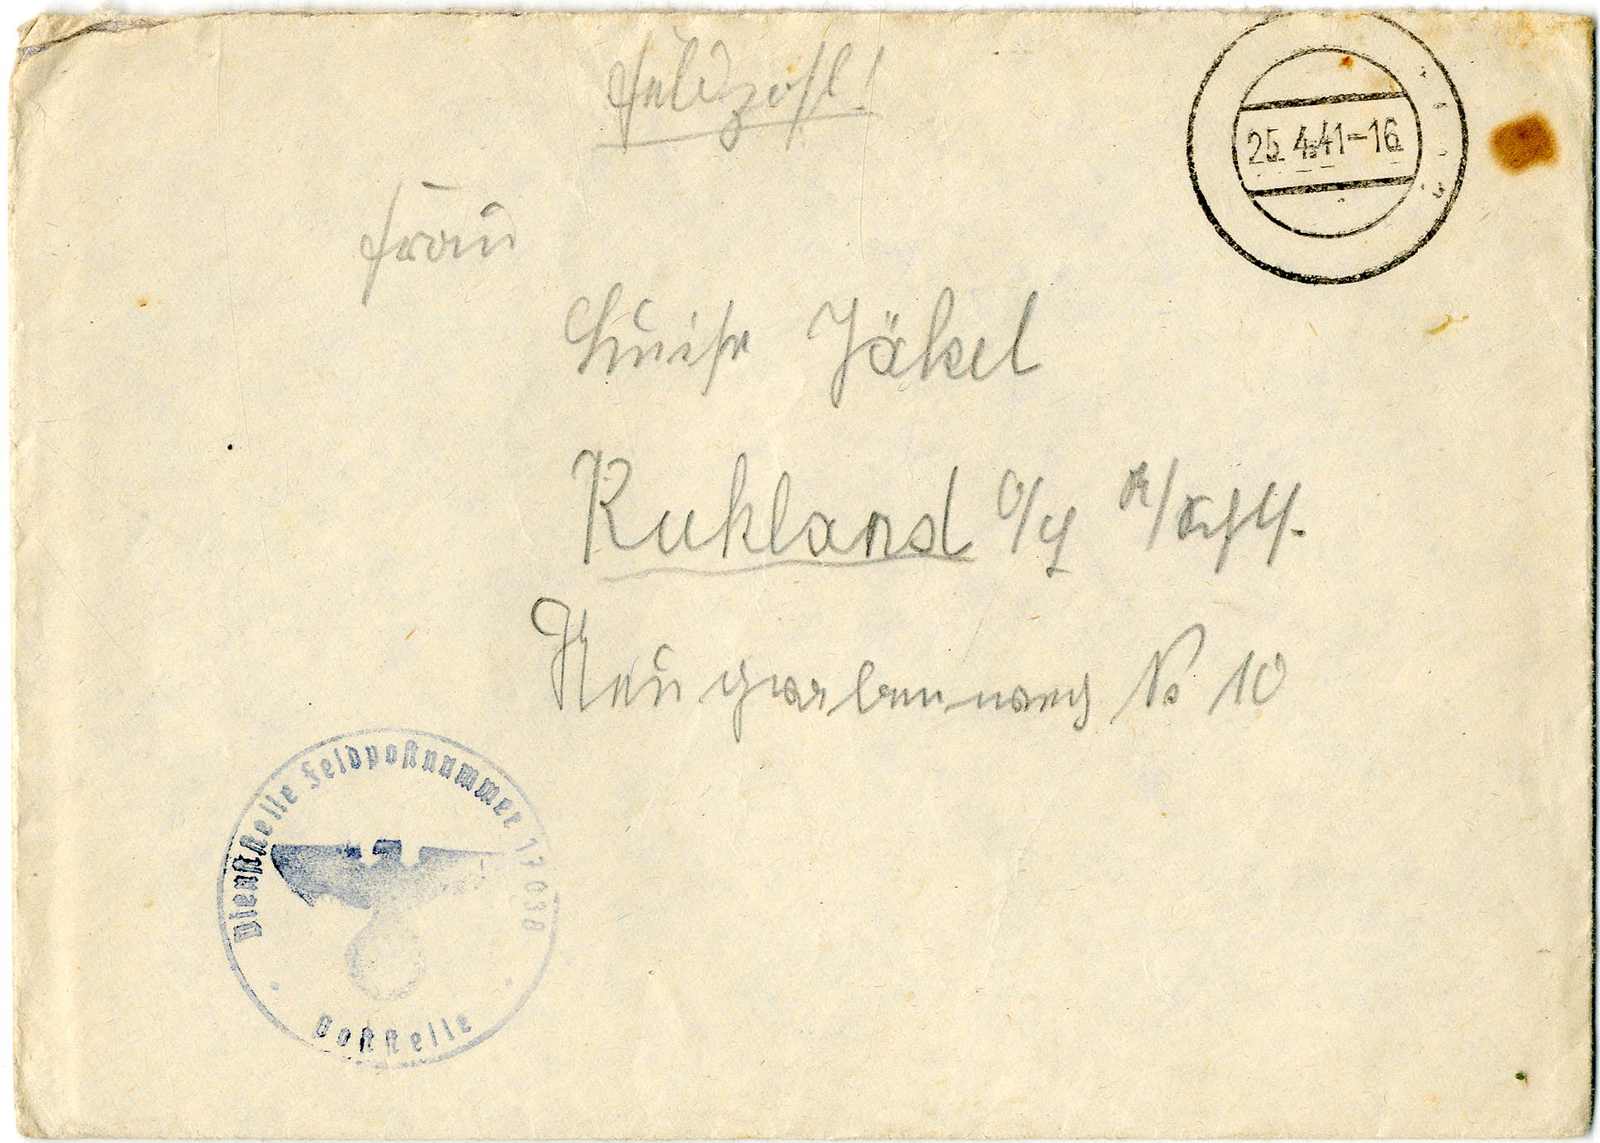 Feldpost!
25.4.41-16
Frau
Luise Jäkel
Ruhland O/L
Neugrabenweg No 10
Dienststelle Feldpostnummer 17038
Poststelle